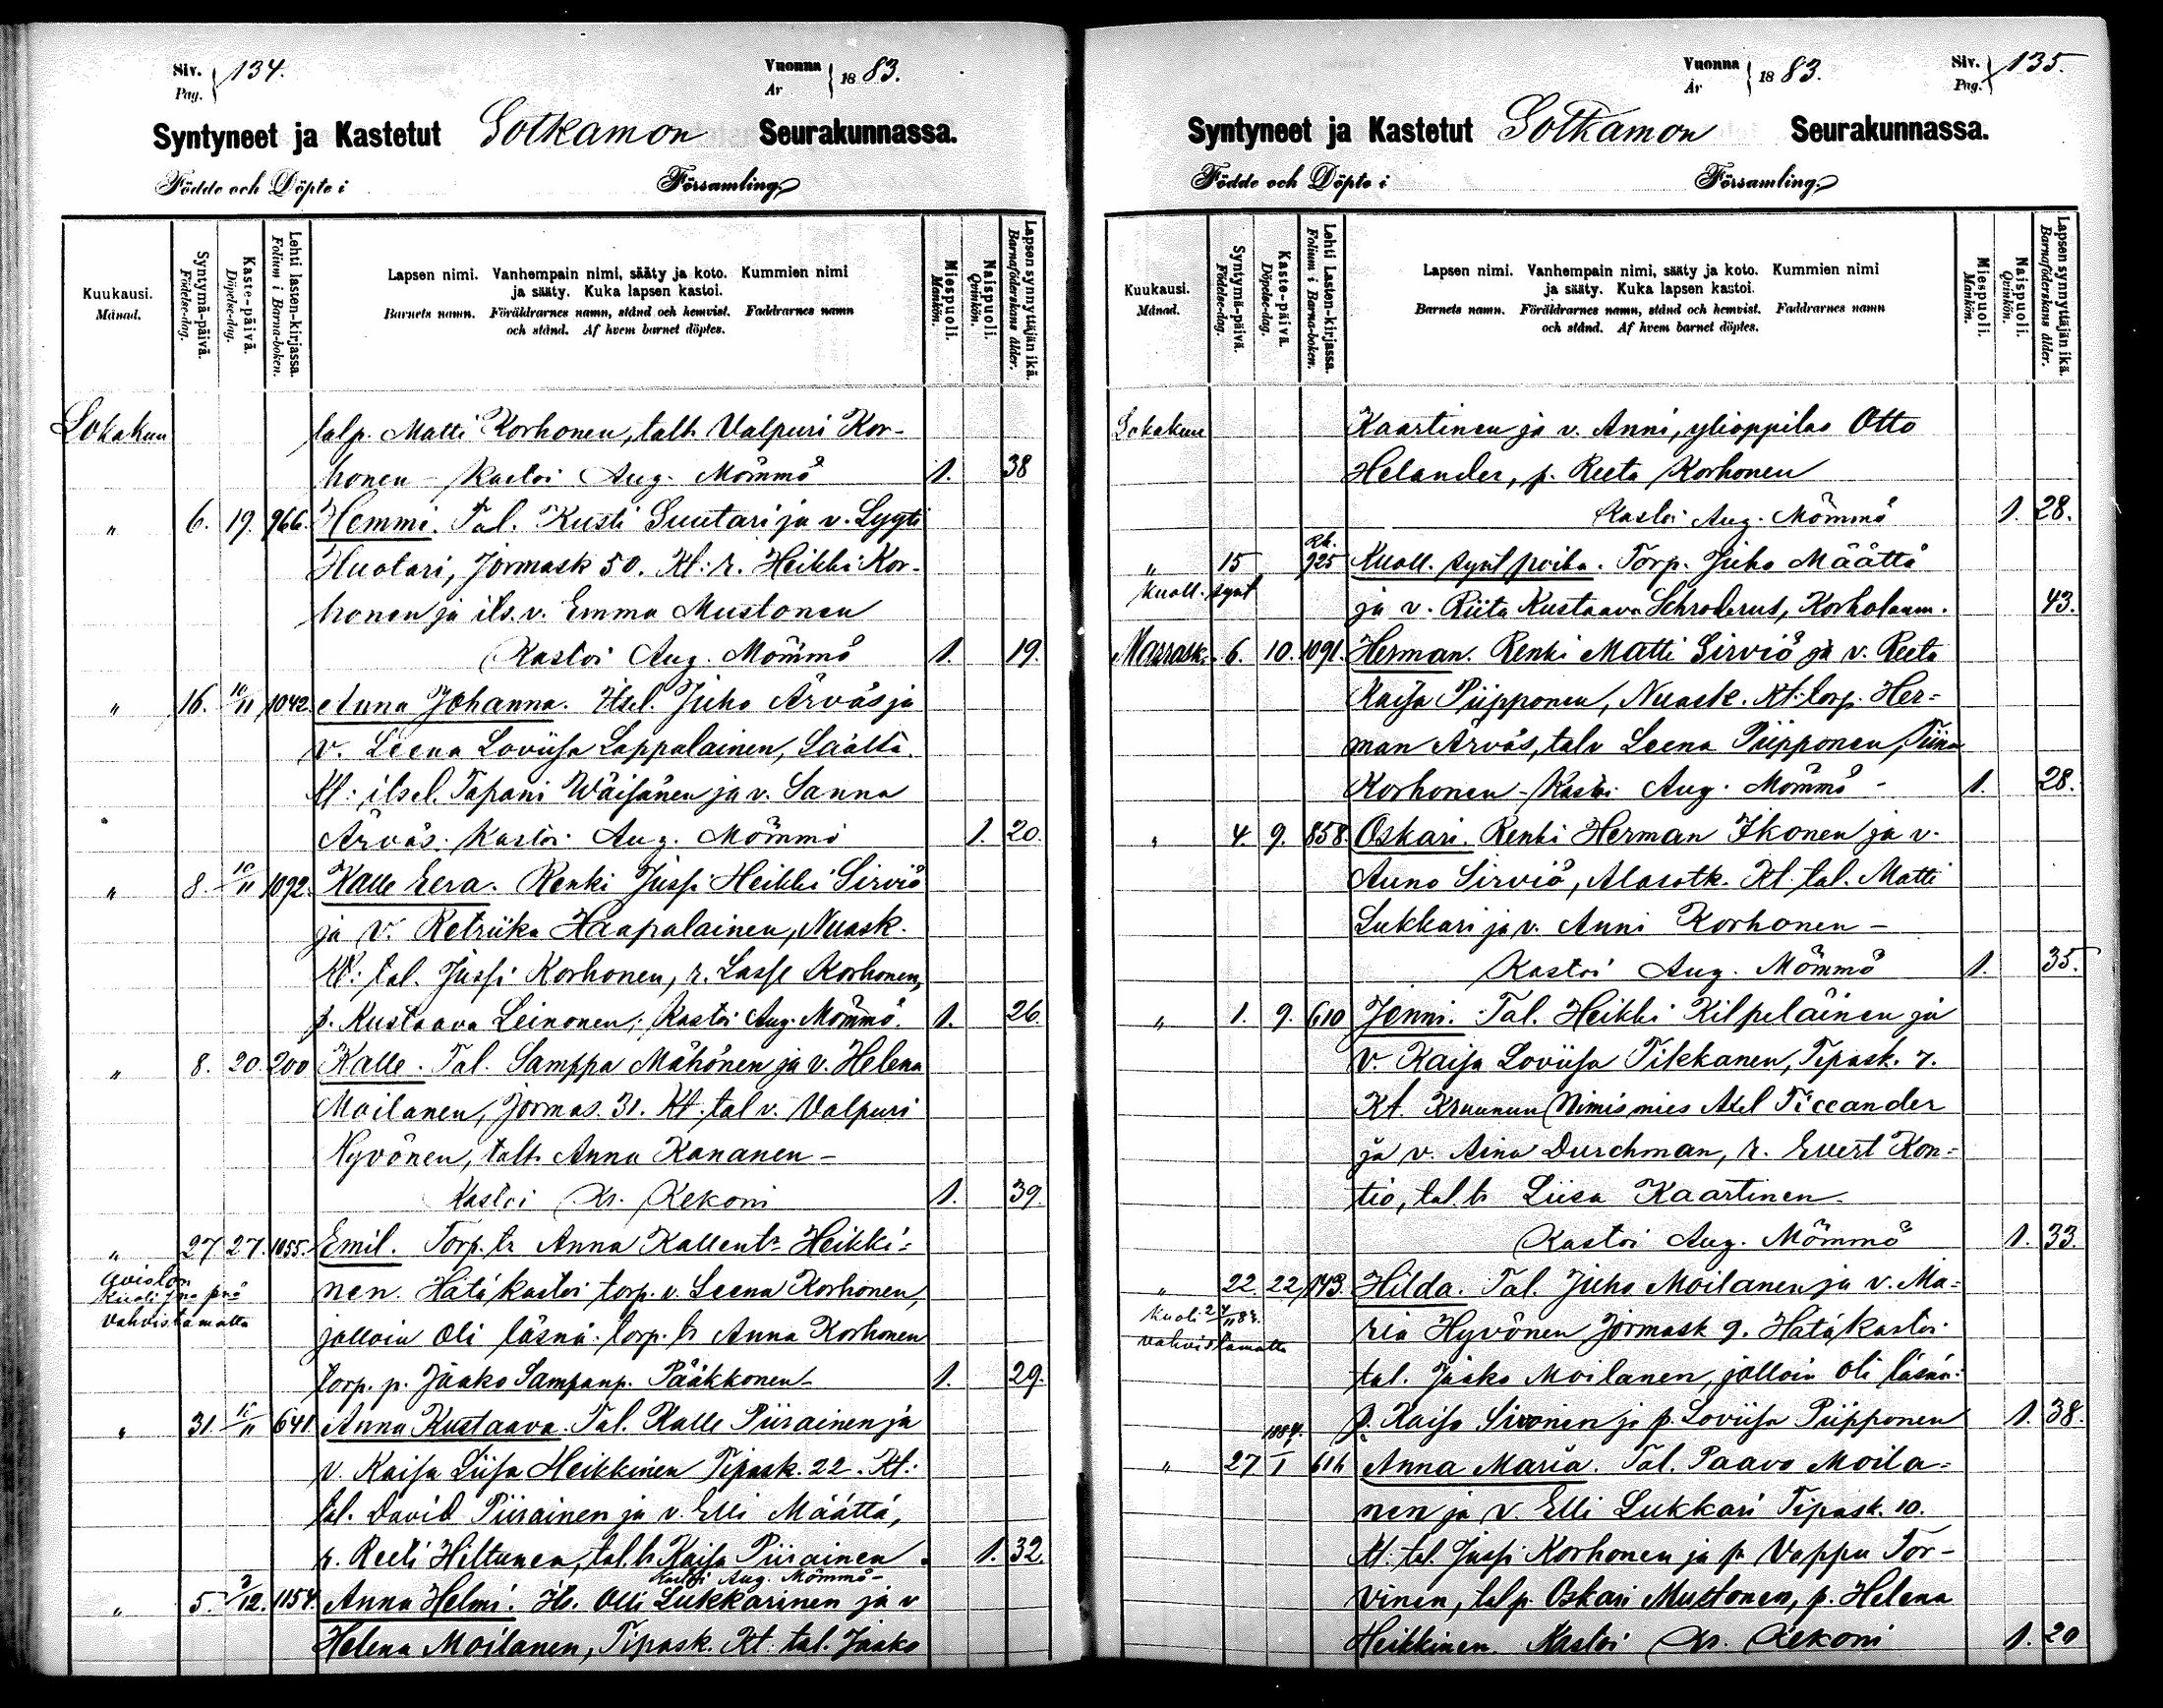 Siv. 134. Vuonna 1883.
Pag. År
Syntyneet ja Kastetut Sotkamon Seurakunnassa.
Födde och Döpte i Församling.
Kuukausi. Månad.
Syntymä-päivä. Födelse-dag.
Kaste-päivä. Döpelse-dag.
Lehti lasten-kirjassa. Folium i Barna-boken.
Lapsen nimi. Vanhempain nimi, sääty ja koto. Kummien nimi
ja sääty. Kuka lapsen kastoi.
Barnets namn. Föräldrarnes namn, stånd och hemvist. Faddrarnes namn
och stånd. Af hvem barnet döptes.
Miespuoli. Mankön.
Naispuoli. Qvinkön.
Lapsen synnyttäjän ikä. Barnaföderskans ålder.
Lokakuu talp. Matti Korhonen, talt. Valpuri Kor-
honen - Kastoi Aug. Mömmö 1. 38
" 6. 19. 966. Hemmi. Tal. Kusti Suutari ja v. Lyyti
Huotari, Jormask 50. Kt: r. Heikki Kor-
honen ja ils. v. Emma Mustonen
Kastoi Aug. Mömmö 1. 19.
" 16. 10/11 1042. Anna Johanna. Itsel. Juho Ärväs ja
v. Leena Loviisa Lappalainen,
Kt: itsel. Tapani Wäisänen ja v. Sanna
Ärväs. Kastoi Aug. Mömmö 1. 20.
" 8. 10/11 1092. Kalle Eera. Renki Jussi Heikki Sirviö
ja v. Retriika Haapalainen, Nuask.
Kt: tal. Jussi Korhonen, r. Lasse Korhonen,
p. Kustaava Leinonen; Kastoi Aug. Mömmö. 1. 26.
" 8. 20. 200 Kalle. Tal. Samppa Mähönen ja v. Helena
Moilanen, Jormas. 31. Kt: tal v. Valpuri
Hyvönen, talt. Anna Kananen -
Kastoi Kr. Rekoni 1. 39.
" 27 27. 1055. Emil. Torp. tr Anna Kallentr Heikki=
avioton nen. Hätäkastoi torp. v. Leena Korhonen,
vahvistamatta jolloin oli läsnä: torp. tr Anna Korhonen
torp. p. Jaako Sampanp. Pääkkonen - 1. 29.
" 31. 10/11 641. Anna Kustaava. Tal. Kalle Piirainen ja
v. Kaisa Liisa Heikkinen Tipask. 22. Kt:
tal. David Piirainen ja v. Elli Määttä,
r. Reeti Hiltunen, tal. tr Kaisa Piirainen 1. 32.
Kastoi Aug. Mömmö -
" 5. 3/12. 1154. Anna Helmi. Its. Olli Lukkarinen ja v
Helena Moilanen, Tipask. Kt: tal. Jaako
Vuonna 1883. Siv. 135.
År Pag.
Syntyneet ja Kastetut Sotkamon Seurakunnassa.
Födde och Döpte i Församling.
Kuukausi. Månad.
Syntymä-päivä. Födelse-dag.
Kaste-päivä. Döpelse-dag.
Lehti Lasten-kirjassa. Folium i Barna-boken.
Lapsen nimi. Vanhempain nimi, sääty ja koto. Kummien nimi
ja sääty. Kuka lapsen kastoi.
Barnets namn. Föräldrarnes namn, stånd och hemvist. Faddrarnes namn
och stånd. Af hvem barnet döptes.
Miespuoli. Mankön.
Naispuoli. Qvinkön.
Lapsen synnyttäjän ikä. Barnaföderskans ålder.
Lokakuu Kaartinen ja v. Anni, ylioppilas Otto
Helander, p. Reeta Korhonen
Kastoi Aug. Mömmö 1. 28.
" 15 Rk. 925 Kuoll. synt poika. Torp. Juho Määttä
Kuoll. synt ja v. Riita Kustaava Schroderus, Korholanm. 43.
Marrask. 6. 10. 1091. Herman. Renki Matti Sirviö ja v. Reeta
Kaisa Piipponen, Nuask. Kt: torp. Her=
man Ärväs, talv Leena Piipponen, Tiina
Korhonen - Kastoi Aug. Mömmö - 1. 28.
" 4. 9. 858. Oskari. Renki Herman Ikonen ja v.
Anna Sirviö, Alasotk. Kt: tal. Matti
Lukkari ja v. Anni Korhonen -
Kastoi Aug. Mömmö 1. 35.
" 1. 9. 610 Jenni. Tal. Heikki Kilpeläinen ja
v. Kaisa Loviisa Tikkanen, Tipask. 7.
Kt. Kruunun Nimismies Axel Ticcander
ja v. Aina Durchman, r. Evert Kon=
tio, tal. tr Liisa Kaartinen -
Kastoi Aug. Mömmö 1. 33.
" 22. 22. 143. Hilda. Tal. Juho Moilanen ja v. Ma=
Kuoli 24/11 83. ria Hyvönen Jormask 9. Hätäkastoi
vahvistamatta tal. Jaako Moilanen, jolloin oli läsnä:
p. Kaisa Sironen ja p. Loviisa Piipponen 1. 38.
" 27 1884. I 616 Anna Maria. Tal. Paavo Moila=
nen ja v. Elli Lukkari Tipask. 10.
Kt: tal. Jussi Korhonen ja p. Vappu Tor-
vinen, talp. Oskari Mustonen, p. Helena
Heikkinen. Kastoi Kr. Rekoni 1. 20